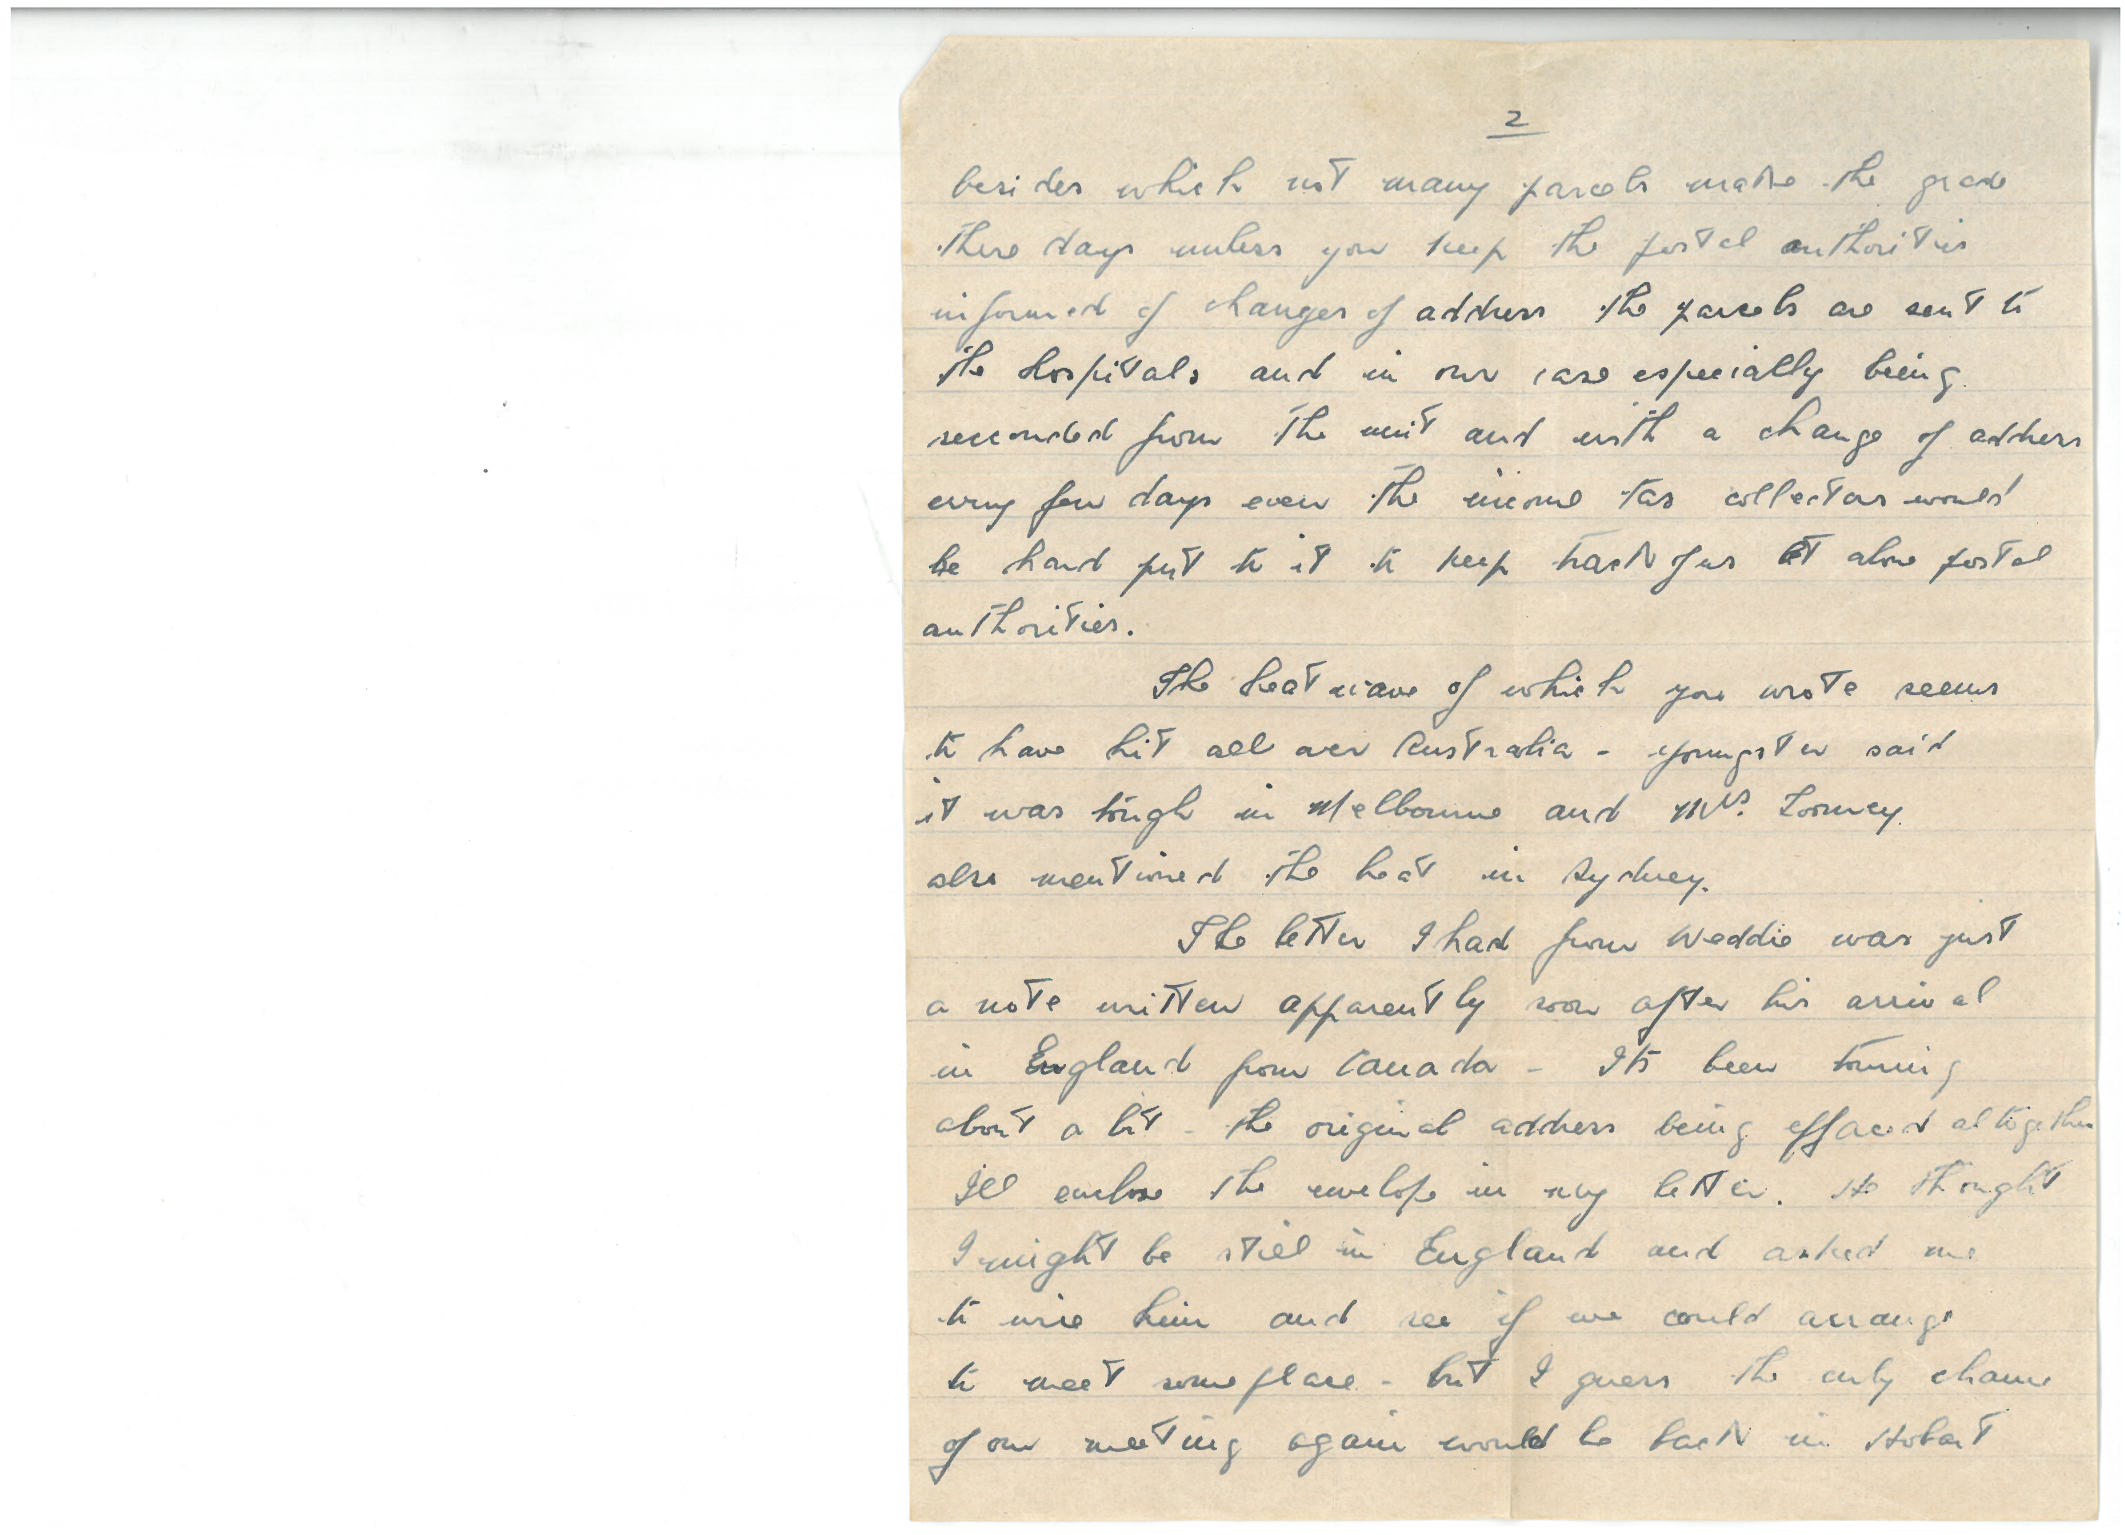 2
besides which not many parcels make the grade
these days unless you keep the postal authorities
informed of changes of address the parcels are sent to
the hospitals and in our case especially being
seconded from the unit and with a change of address
every few days even the income tax collectors would
be hard put to it to keep track of us let alone postal
authorities.
The heat wave of which you wrote seems
to have hit all over Australia - youngster said
it was tough in Melbourne and Mrs. Loomey
also mentioned the heat in Sydney.
The letter I had from Weddie was just
a note written apparently soon after his arrival
in England from Canada - Its been touring
about a bit - the original address being effaced altogether
I'll enclose the envelope in my letter. He thought
I might be still in England and asked me
to wire him and see if we could arrange
to meet some place - but I guess the only chance
of our meeting again would be back in Hobart